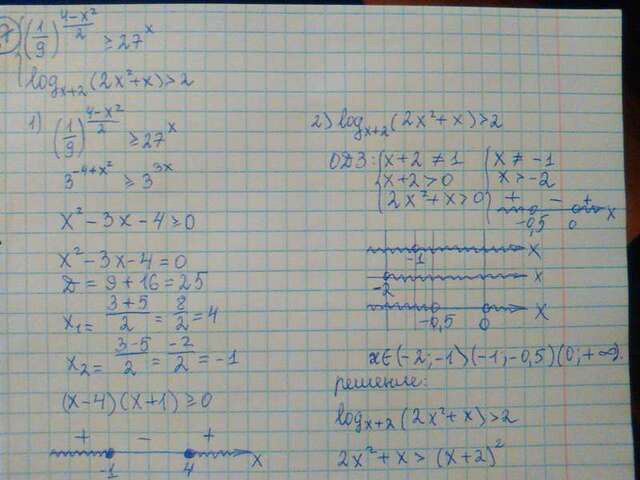 7
(1/9)^((4-x²)/2) ≥ 27^x
log_{x+2}(2x²+x) > 2
1) (1/9)^((4-x²)/2) ≥ 27^x
3^(-4+x²) ≥ 3^(3x)
x² - 3x - 4 ≥ 0
x² - 3x - 4 = 0
D = 9 + 16 = 25
x₁ = (3+5)/2 = 8/2 = 4
x₂ = (3-5)/2 = -2/2 = -1
(x-4)(x+1) ≥ 0
+ - +
-1 4 x
2) log_{x+2}(2x²+x) > 2
ОДЗ: { x+2 ≠ 1 { x ≠ -1
{ x+2 > 0 { x > -2
{ 2x²+x > 0 { + - +
-0,5 0 x
-1 x
-2 x
-0,5 0 x
x ∈ (-2; -1) (-1; -0,5) (0; +∞).
решение:
log_{x+2}(2x²+x) > 2
2x²+x > (x+2)²